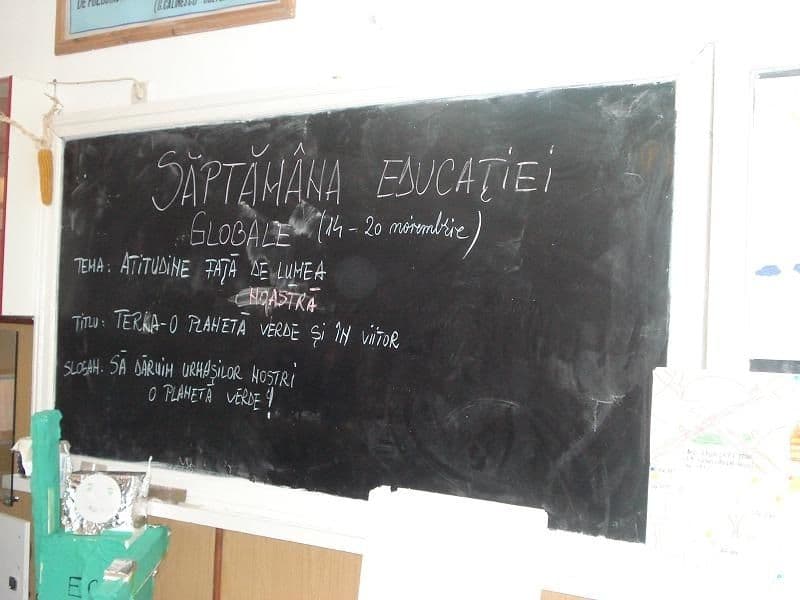 (G. CĂLINESCU
SĂPTĂMÂNA EDUCAŢIEI
GLOBALE (14 - 20 noiembrie)
TEMA: ATITUDINE FAŢĂ DE LUMEA
NOASTRĂ
TITLU: TERRA-O PLANETĂ VERDE ŞI ÎN VIITOR
SLOGAN: SĂ DĂRUIM URMAŞILOR NOŞTRI
O PLANETĂ VERDE!